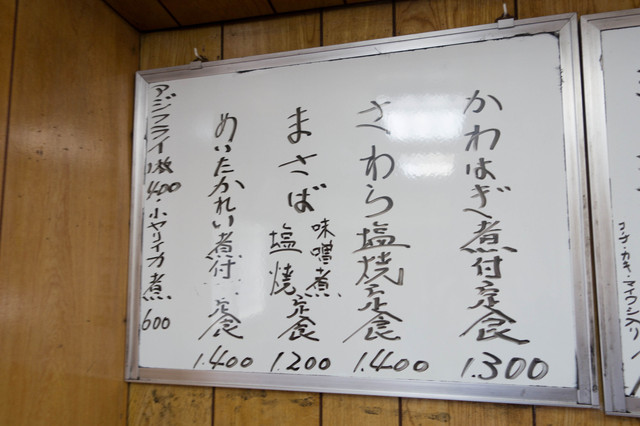 かわはぎ煮付定食 1.300
さわら塩焼定食 1.400
まさば 味噌煮 塩焼 定食 1.200
めいたかれい煮付定食 1.400
アジフライ1枚400・小ヤリイカ煮600
カキ・マイワシ入り